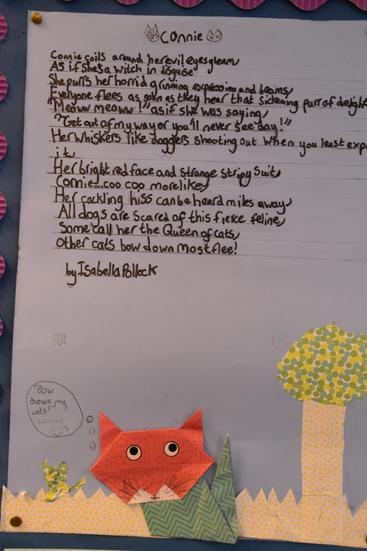 Connie
Connie coils around her evil eyes gleam
As if she's a witch in disguise
She purrs her horrid grinning expression and beams
Everyone flees as soon as they hear that sickening purr of delight
"Meow meow!" as if she was saying
"Get out of my way or you'll never see day!"
Her whiskers like daggers shooting out when you least expe
it
Her bright red face and strange stripy suit
Connie...coo coo more likes
Her cackling hiss can be heard miles away
All dogs are scared of this fierce feline
Some call her the Queen of cats
Other cats bow down most flee!
by Isabella Pollock
"Bow
down my
cats!"